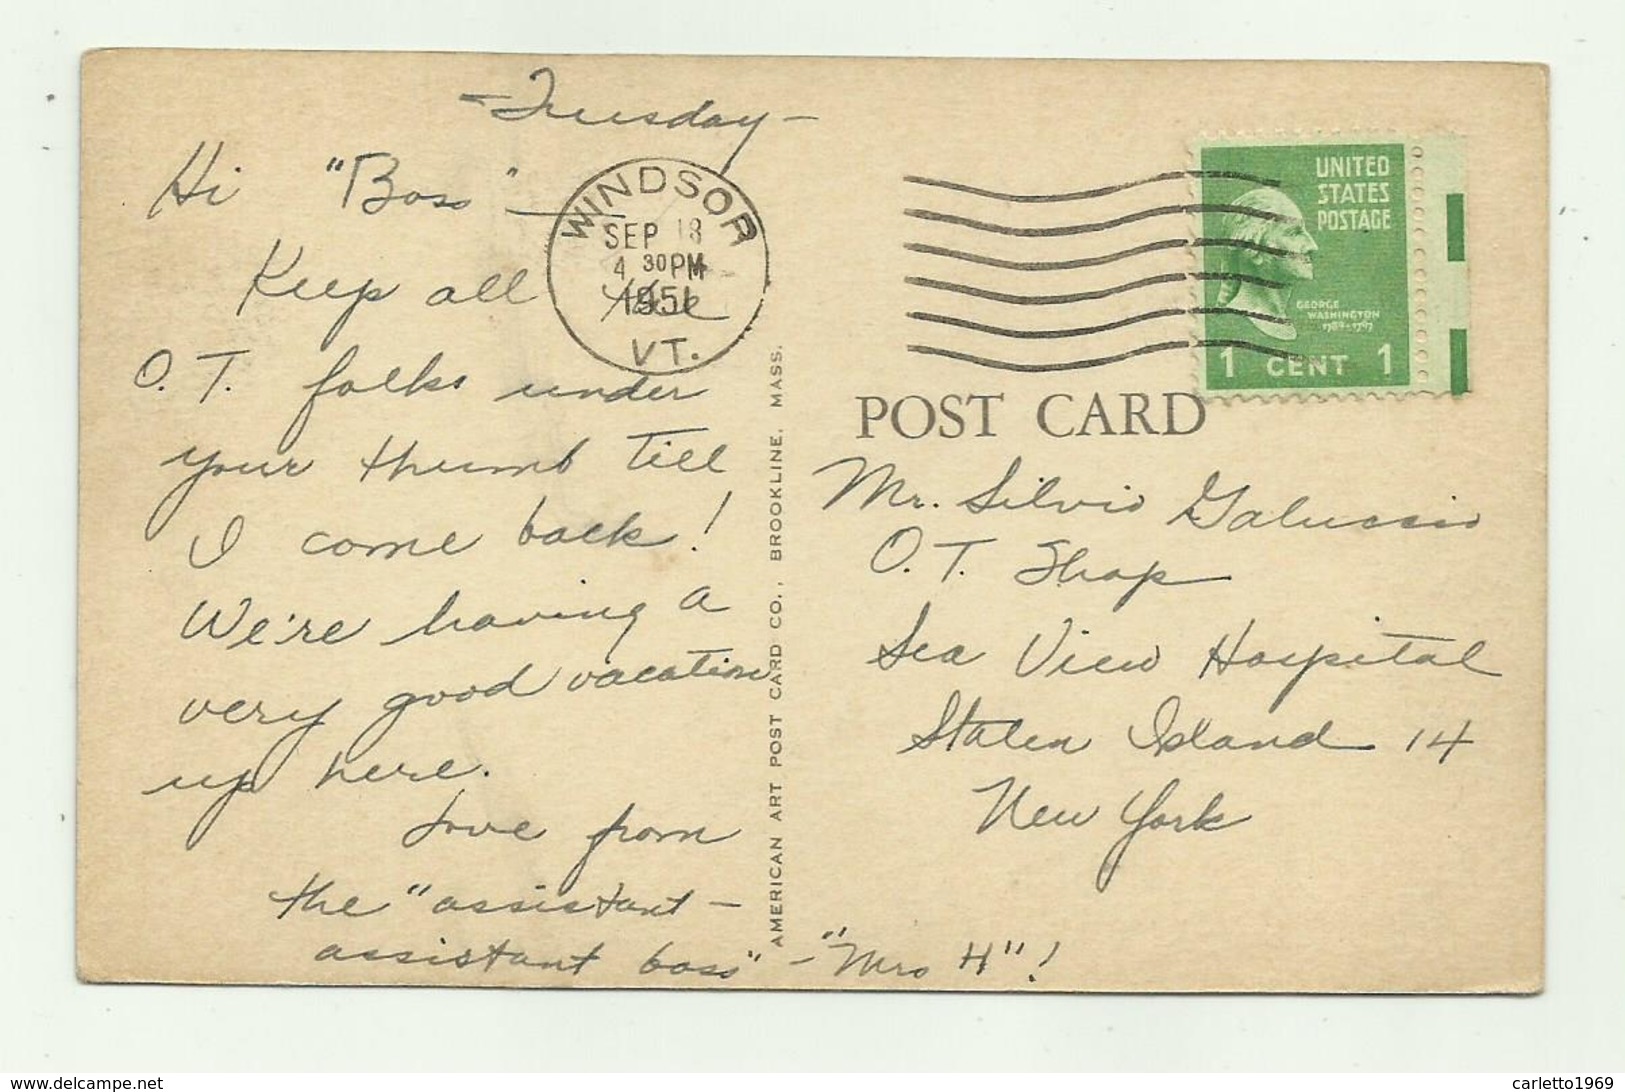 -Tuesday-
Hi "Boss"-
Keep all
O. T. folks under
your thumb till
I come back!
We're having a
very good vacation
up here.
Love from
the "assistant-
assistant boss" - "Mrs H"!
WINDSOR
SEP 18
4 30 PM
1951
VT.
AMERICAN ART POST CARD CO., BROOKLINE, MASS.
UNITED
STATES
POSTAGE
GEORGE
WASHINGTON
1789-1797
1 CENT 1
POST CARD
Mr. Silvio Galucsio
O. T. Shop
Sea View Hospital
Staten Island 14
New York
http://www.delcampe.net
carletto1969